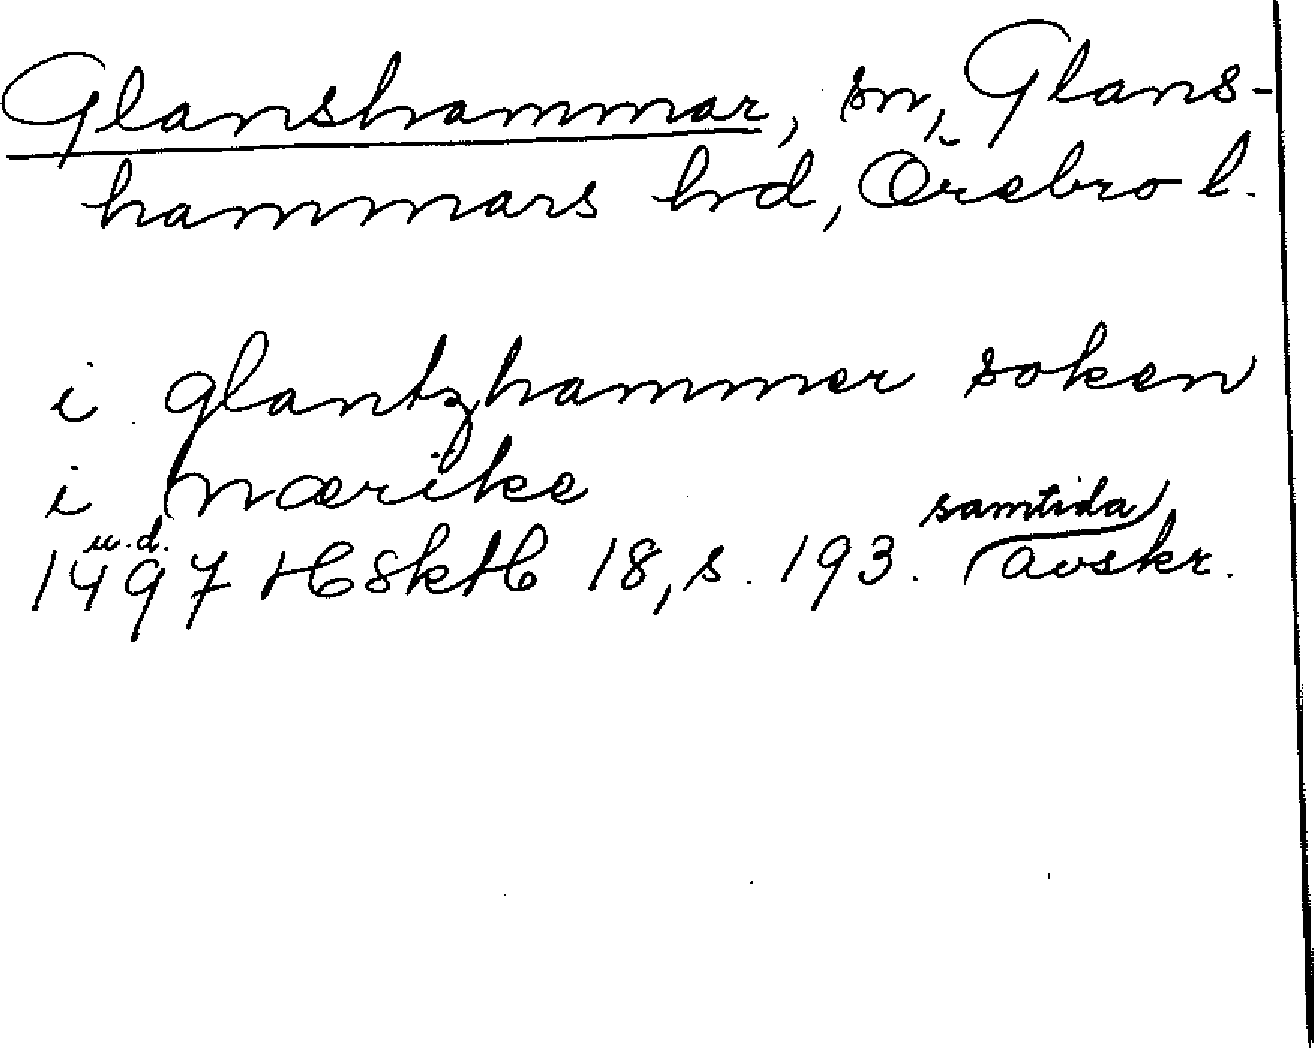 Glanshammar, sn, Glans-
hammars hrd, Örebro l.
i glantzhammer soken
i nærike
1497 u.d. HSkH 18, s. 193. samtida avskr.